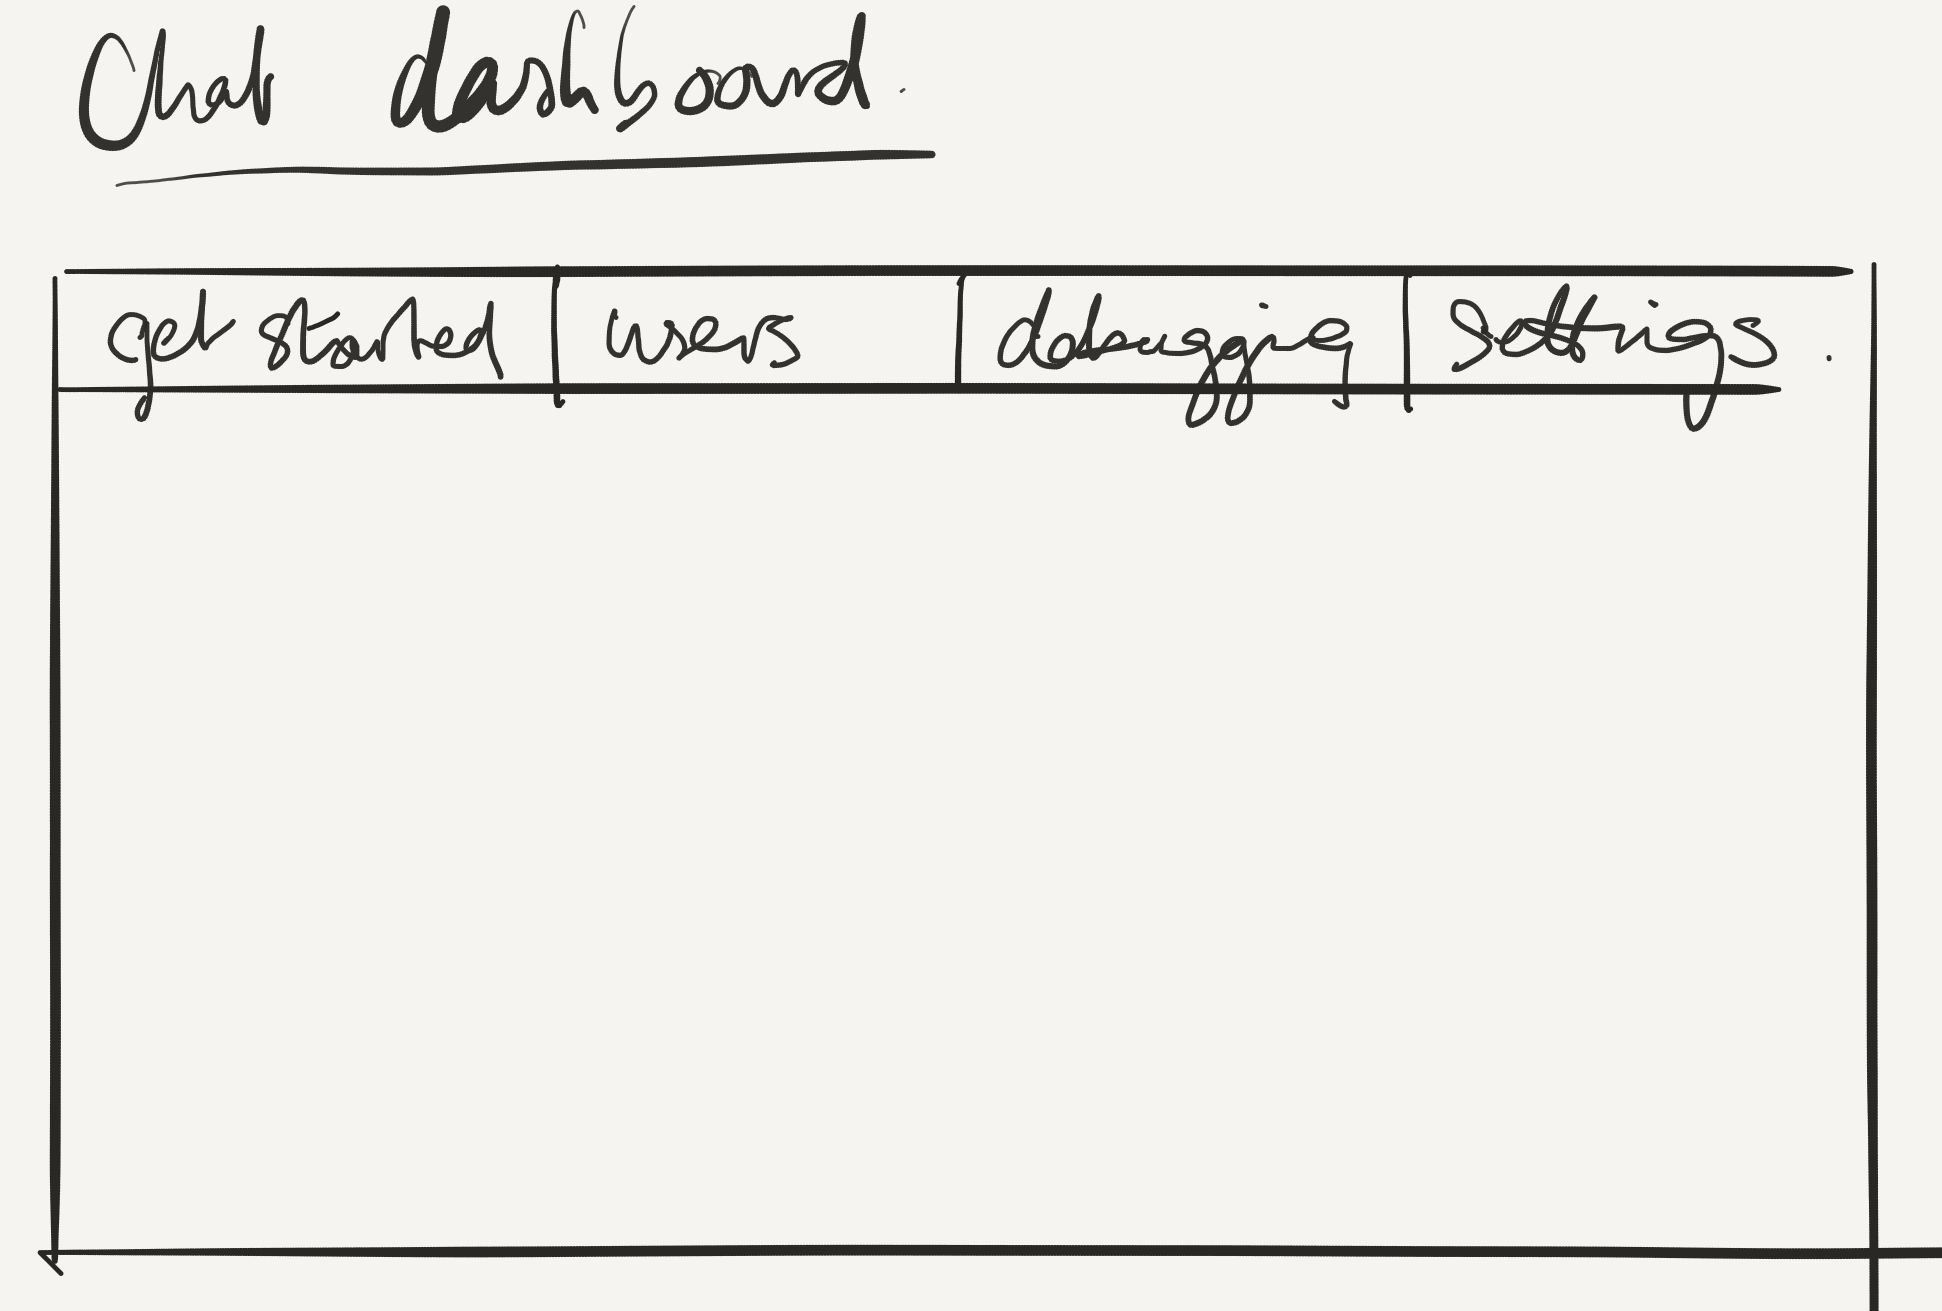 Chat dashboard
get started users debugging settings